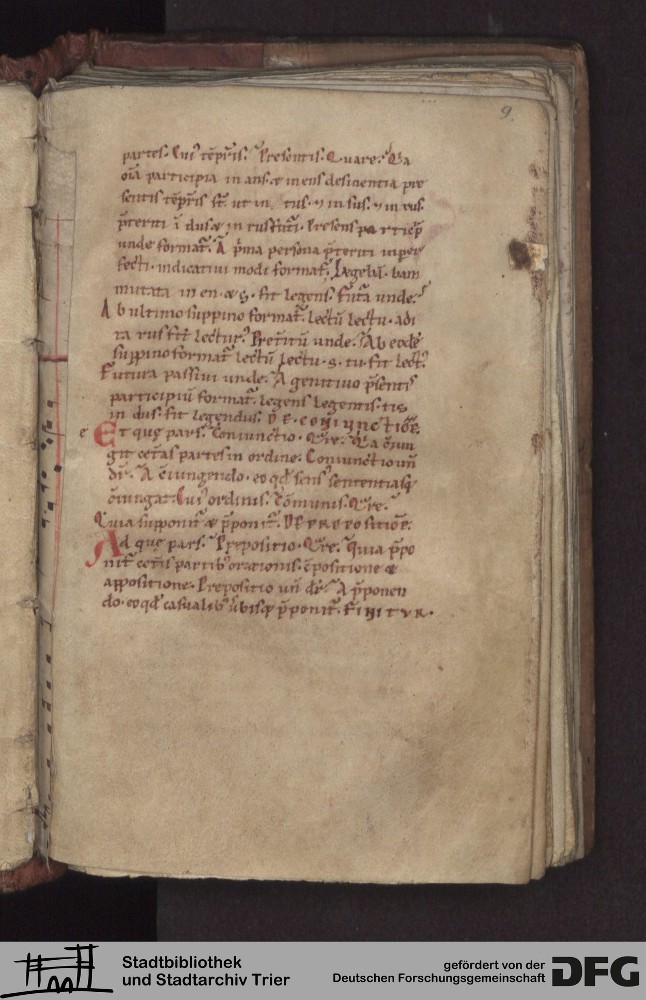 9
partes. Cuiꝰ tēpr̄is. Presentis. Quare. Q̄a
oīa participia in ans. & in ens desinentia pre
sentis tēpr̄is st̄ ut in tus. ⁊ in sus. ⁊ in xus.
p̄teriti ī dus & in rus futuri. Presens particip̄
unde format̄. A p̄ma persona p̄teriti inper
fecti. indicativi modi format̄. Legebā. bam
mutata in en. & s. fit legens. Futura unde.
Ab ultimo suppino format̄. lectū lectu. adi
ta rus fit lecturꝰ. Pret̄itū unde. Ab eodē
suppino format̄ lectū lectu. s. tu. fit lectꝰ.
Futura passivi unde. A genitivo p̄sentis
participiū format̄. legens legentis. tis
in dus. fit legendus. DE CONIUNCTIŌE.
e Et quę pars. Coniunctio. Q̄re. Q̄a cōiun
git cet̄as partes in ordine. Coniunctio un̄
dr̄. A cōiungendo. eo qđ sensꝰ sententiasq;
cōiungat. Cuiꝰ ordinis. Cōmunis. Q̄re.
Quia supponit̄ & p̄ponit̄. DE PREPOSITIŌE.
Ad quę pars. Prepositio. Q̄re. quia p̄po
nit̄ cet̄is partibꝰ orationis. cōpositione &
appositione. Prepositio un̄ dr̄. A p̄ponen
do. eo qđ casualibꝰ ūbisq; p̄ponit̄. FINITUR.
Stadtbibliothek
und Stadtarchiv Trier
gefördert von der
Deutschen Forschungsgemeinschaft
DFG